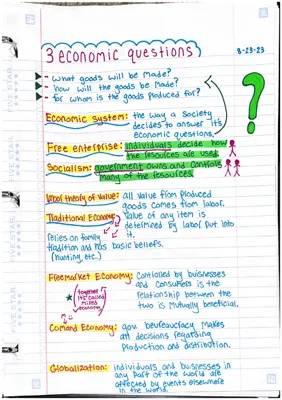 3 economic questions
8-23-23
- what goods will be made?
- how will the goods be made?
- for whom is the goods produced for?
Economic system: the way a society
decides to answer it's
economic questions.
Free enterprise: individuals decide how
the resources are used.
Socialism: government owns and controls
many of the resources.
labor theory of value: All value from produced
goods comes from labor.
Traditional Economy: Value of any item is
determined by labor put into
it.
relies on family
tradition and has basic beliefs.
(hunting, etc.)
Freemarket Economy: Controlled by buisnesses
and Consumers is the
relationship between the
two is mutually beneficial.
together
it's called
mixed
economy
Comand Economy: gov. beureaucracy makes
all decisions regarding
production and distribution.
Globalization: individuals and businesses in
any part of the world are
affected by events elsewhere
in the world.
FIVE STAR